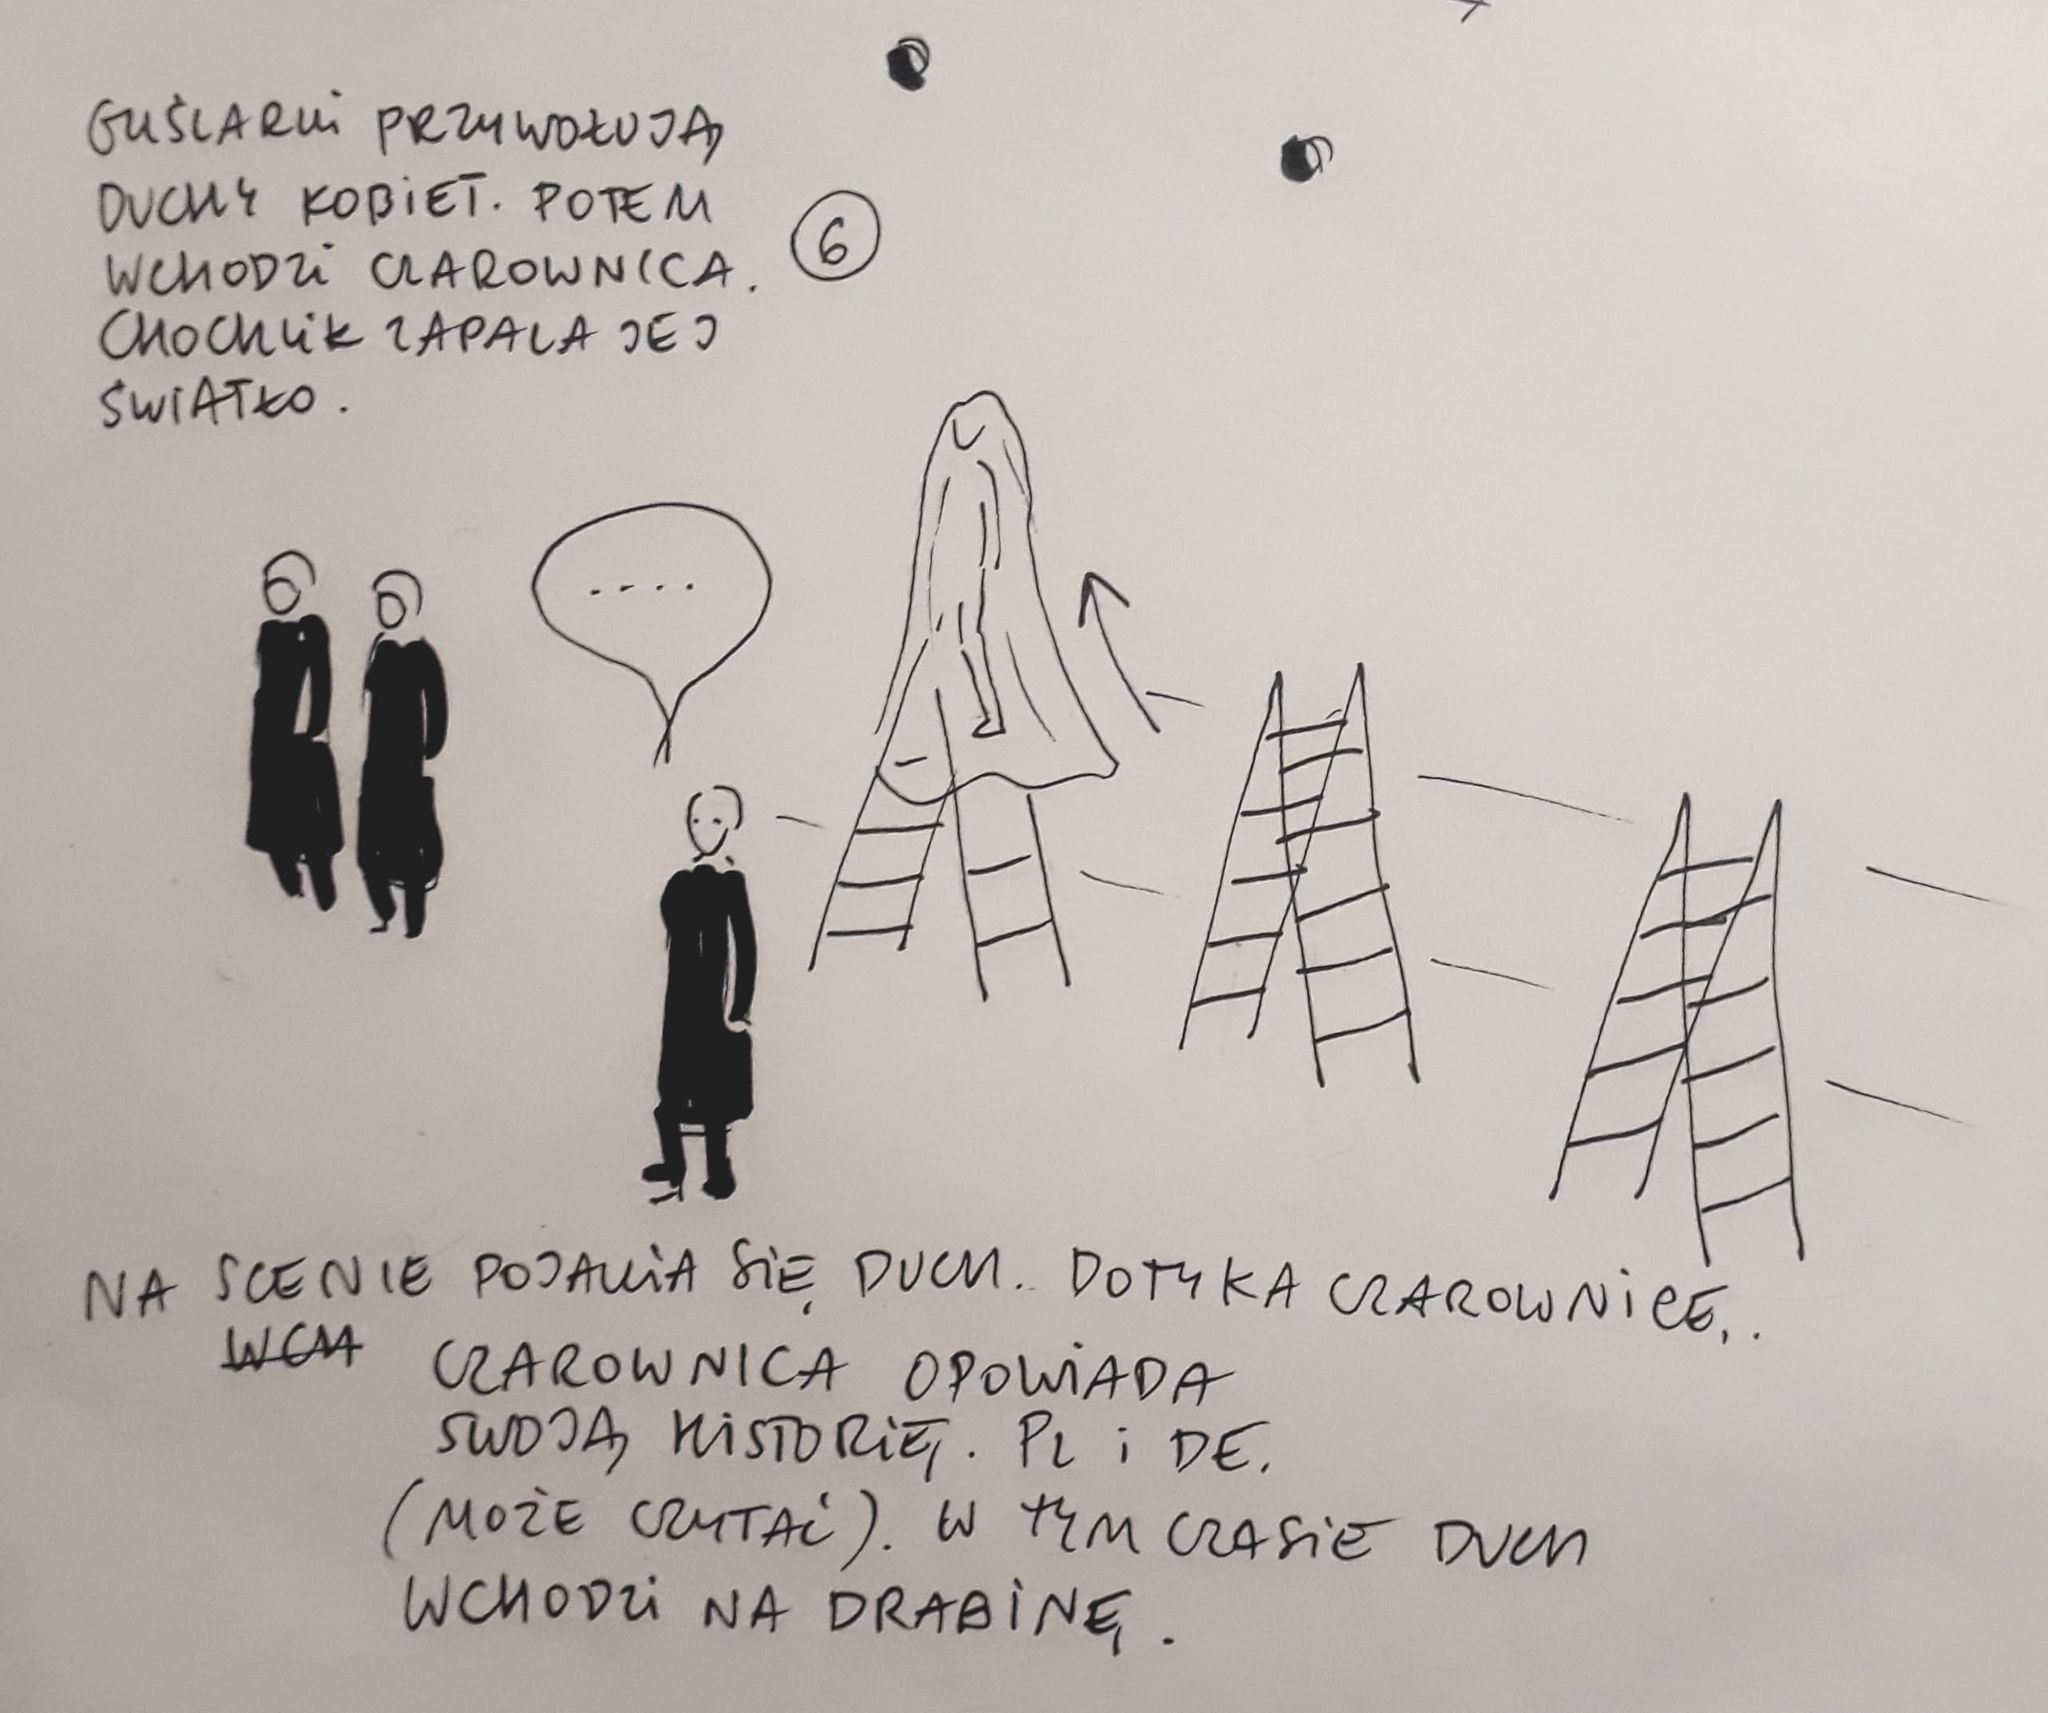 GUŚLARKI PRZYWOŁUJĄ
DUCHY KOBIET. POTEM
WCHODZI CZAROWNICA.
6
CHOCHLIK ZAPALA JEJ
ŚWIATŁO.
....
NA SCENIE POJAWIA SIĘ DUCH. DOTYKA CZAROWNICĘ.
WCH
CZAROWNICA OPOWIADA
SWOJĄ HISTORIĘ. PL i DE.
(MOŻE CZYTAĆ). W TYM CZASIE DUCH
WCHODZI NA DRABINĘ.